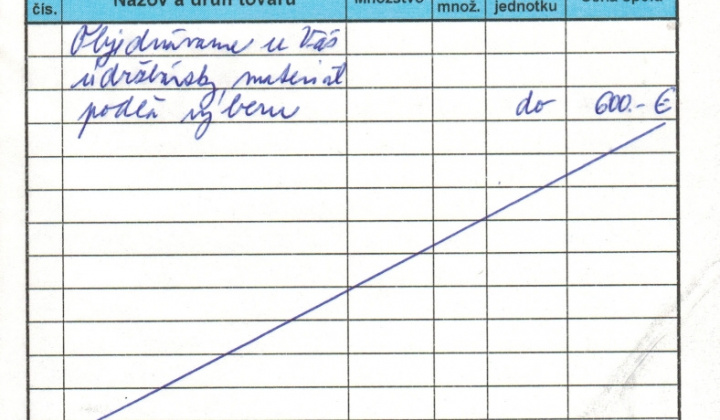 čís. Názov a druh tovaru Množstvo množ. jednotku Cena spolu
Objednávame u Vás
údržbársky materiál
podľa výberu do 600.- €